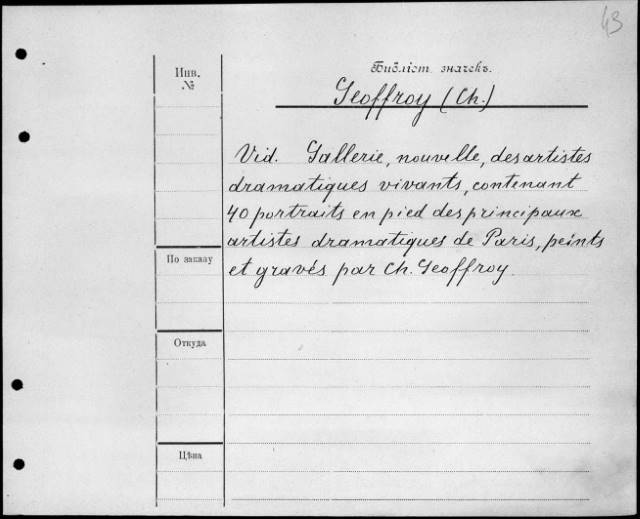 43
Инв.
№
Библіот. значекъ.
Geoffroy (Ch.)
Vid. Gallerie, nouvelle, des artistes
dramatiques vivants, contenant
40 portraits en pied des principaux
artistes dramatiques de Paris, peints
et gravés par Ch. Geoffroy.
По заказу
Откуда
Цѣна